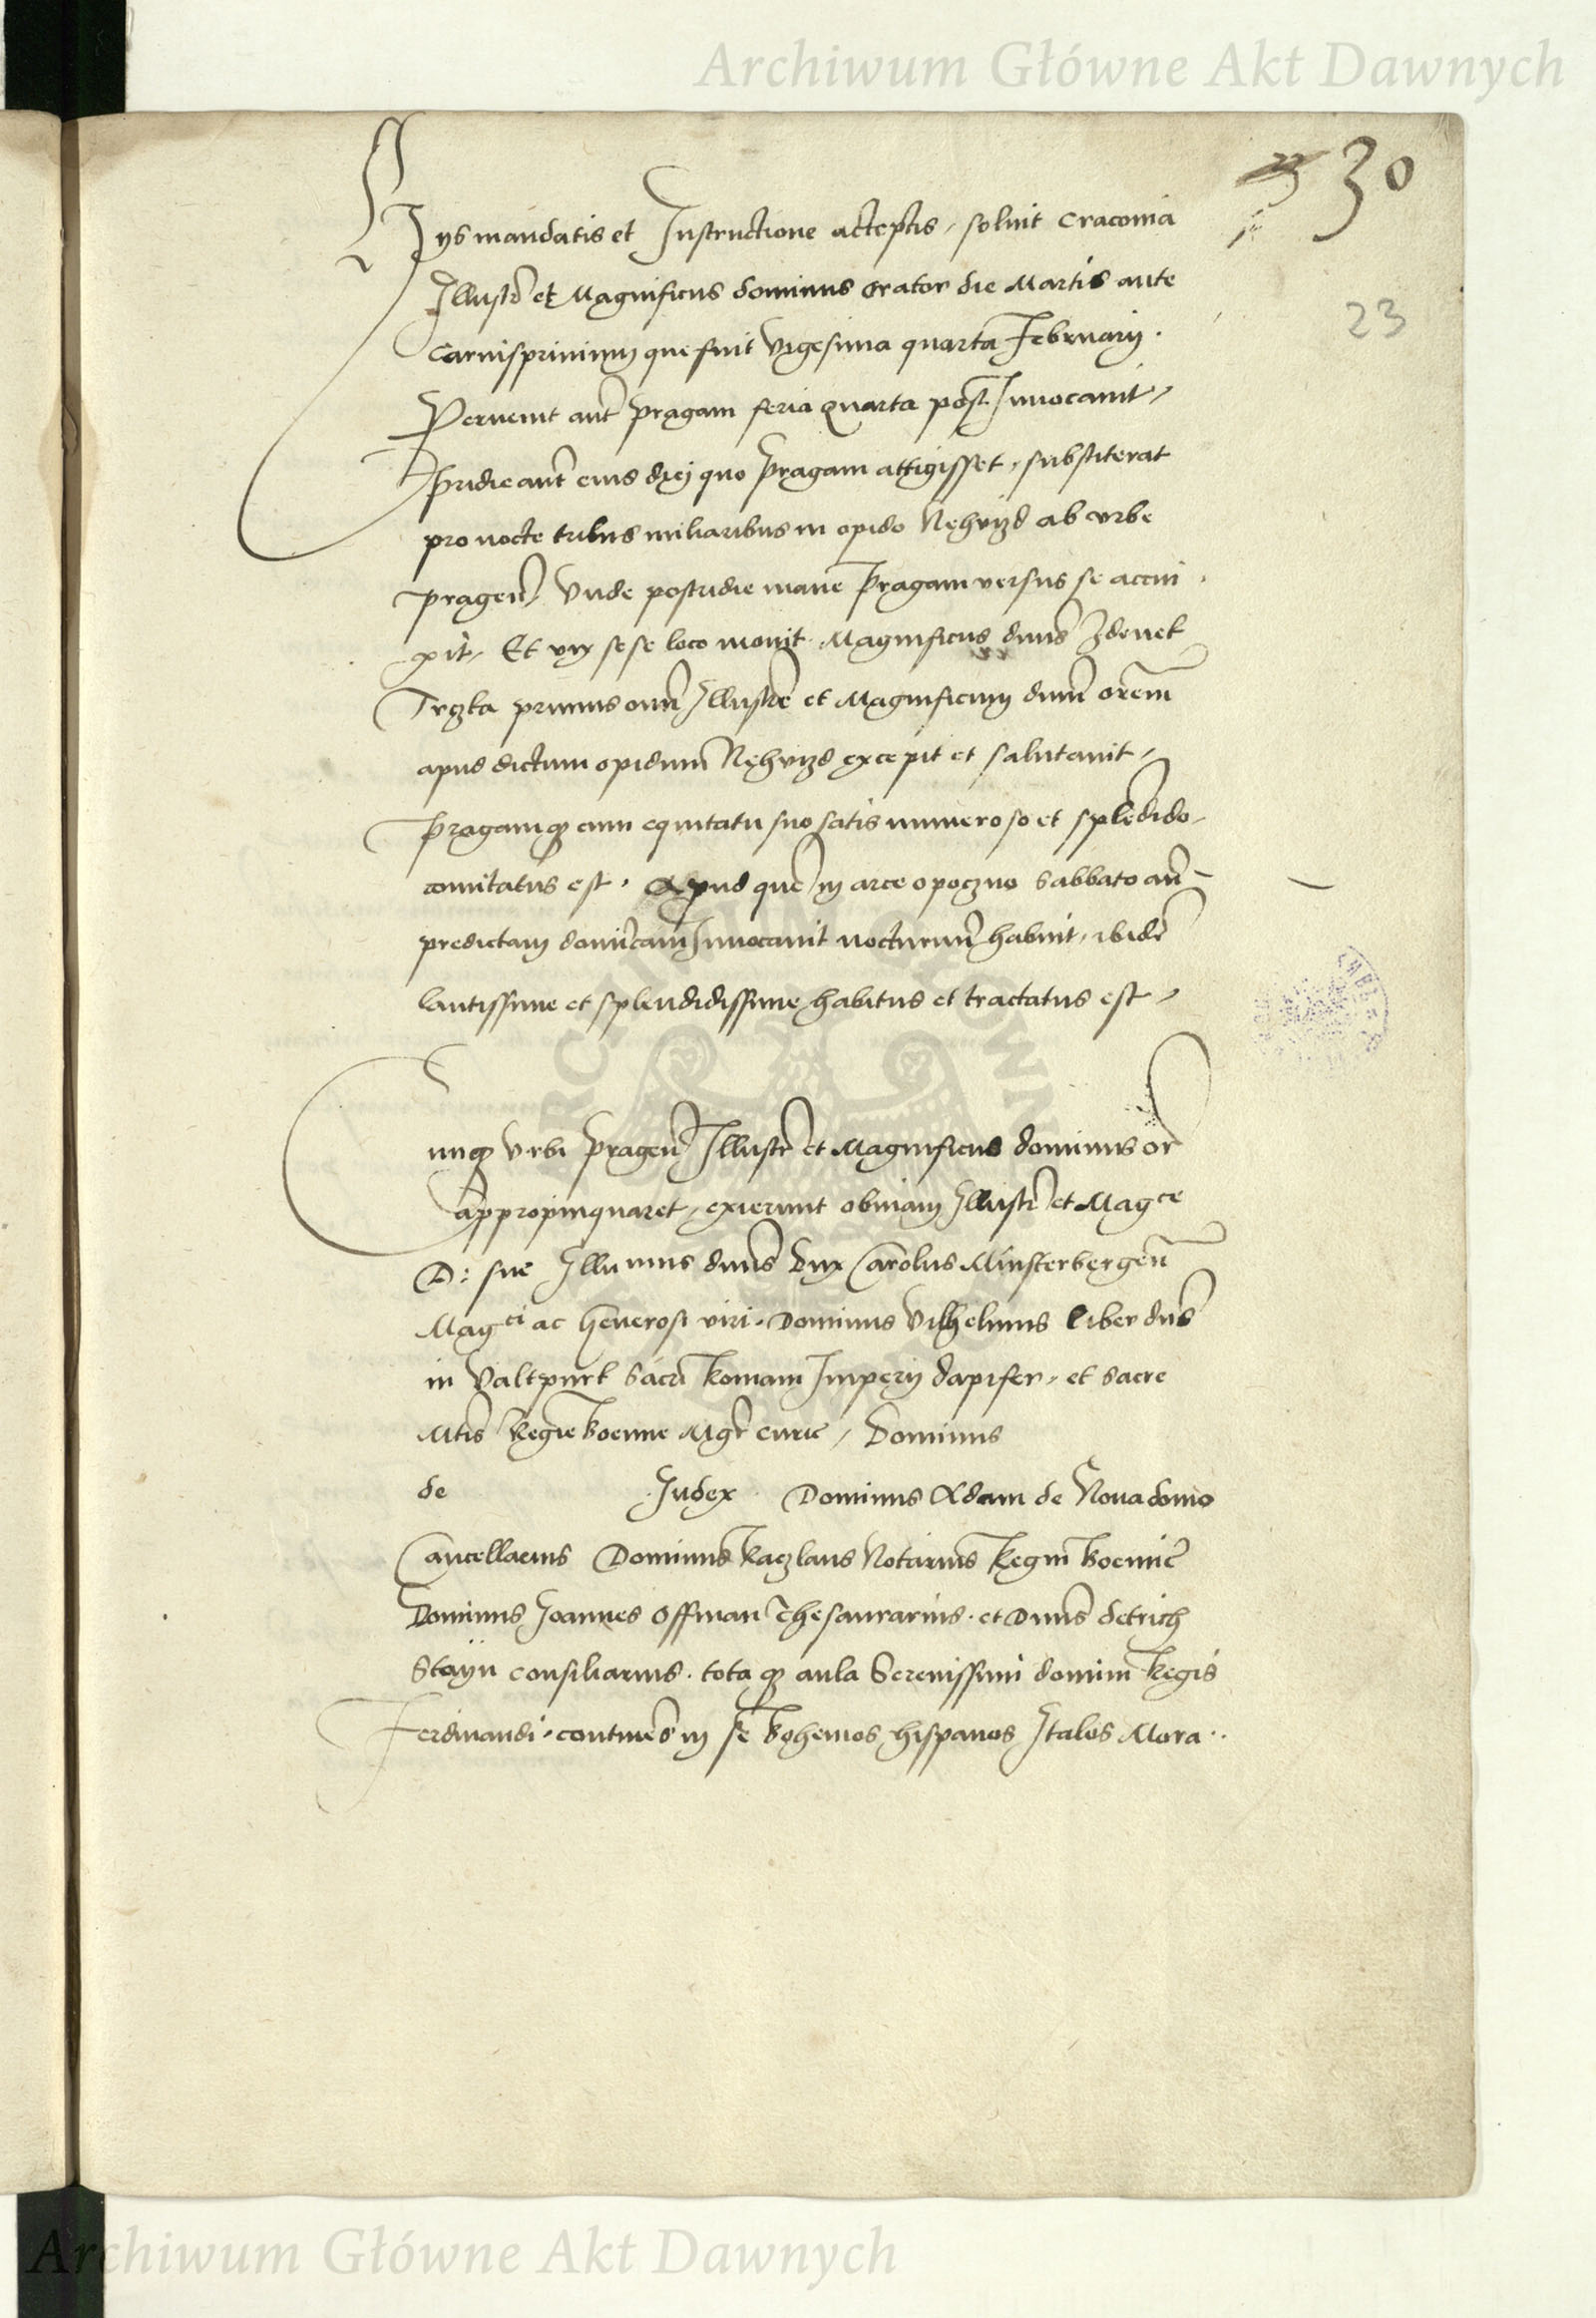 Archiwum Główne Akt Dawnych
30
23
Hys mandatis et Instructione acceptis, soluit Cracouia
Illustr̃ et Magnificus dominus orator die Martis ante
Carnispriuium que fuit vigesima quarta Februarij.
Peruenit aut̃ Pragam feria quarta post Inuocauit,
Pridie aut̃ eius diej quo Pragam attigisset, substiterat
pro nocte tribus miliaribus in opido Nehvizd ab vrbe
Pragen̄, Vnde postridie mane Pragam versus se accin
xit, Et vix sese loco mouit Magnificus dn̄us Zdenek
Trczka primus om̄ Illustrē et Magnificum dn̄m or̄em
apud dictum opidum Nehvizd excepit et salutauit,
Pragamq̣ cum equitatu suo satis numeroso et splēdido,
comitatus est, Apud quē in arce opoczno Sabbato an̄
predictam domīcam Inuocauit nocturnū habuit, ibidē
lautissime et splendidissime habitus et tractatus est,
Cumq̣ Vrbi Pragen̄ Illustr̃ et Magnificus dominus or̃
appropinquaret, exierunt obuiam Illustri et Magce
D: sue Illumus dn̄us Dux Carolus Minsterbergen̄
Magci ac Generosi viri, Dominus Vilhelmus liber dn̄s
in Valtpurk sacri Romani Imperij dapifer, et sacre
Mtis Regie boemie Mgr̃ curie, Dominus
de Judex Dominus Adam de Noua domo
Cancellarius Dominus Raczlaus Notarius Regni boemiē
Dominus Joannes Offman Thesaurarius, et Dn̄us detrich
Stayn consiliarius, totaq̣ aula Serenissimi domini Regis
Ferdinandi, continēs in se bohemos hispanos Italos Mora..
Archiwum Główne Akt Dawnych